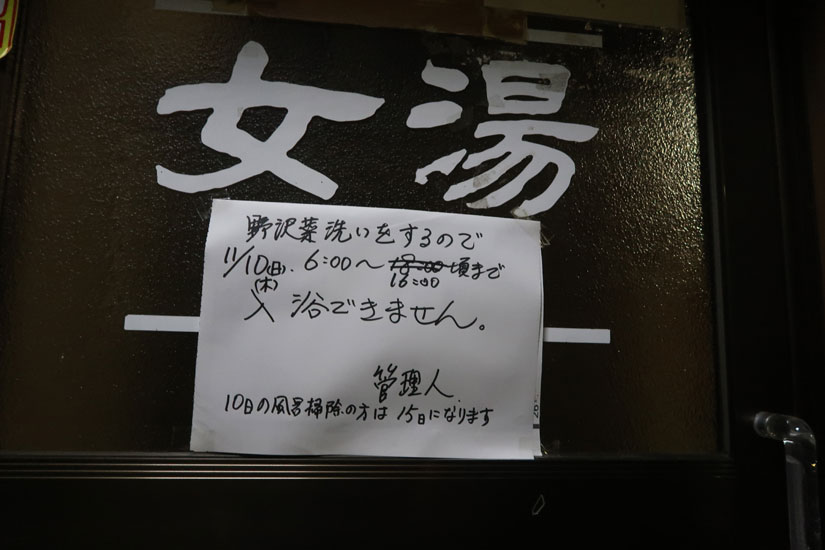 女湯
野沢菜洗いをするので
11/10(日). 6:00〜 頃まで
(木) 16:00
入浴できません。
管理人
10日の風呂掃除の方は15日になります